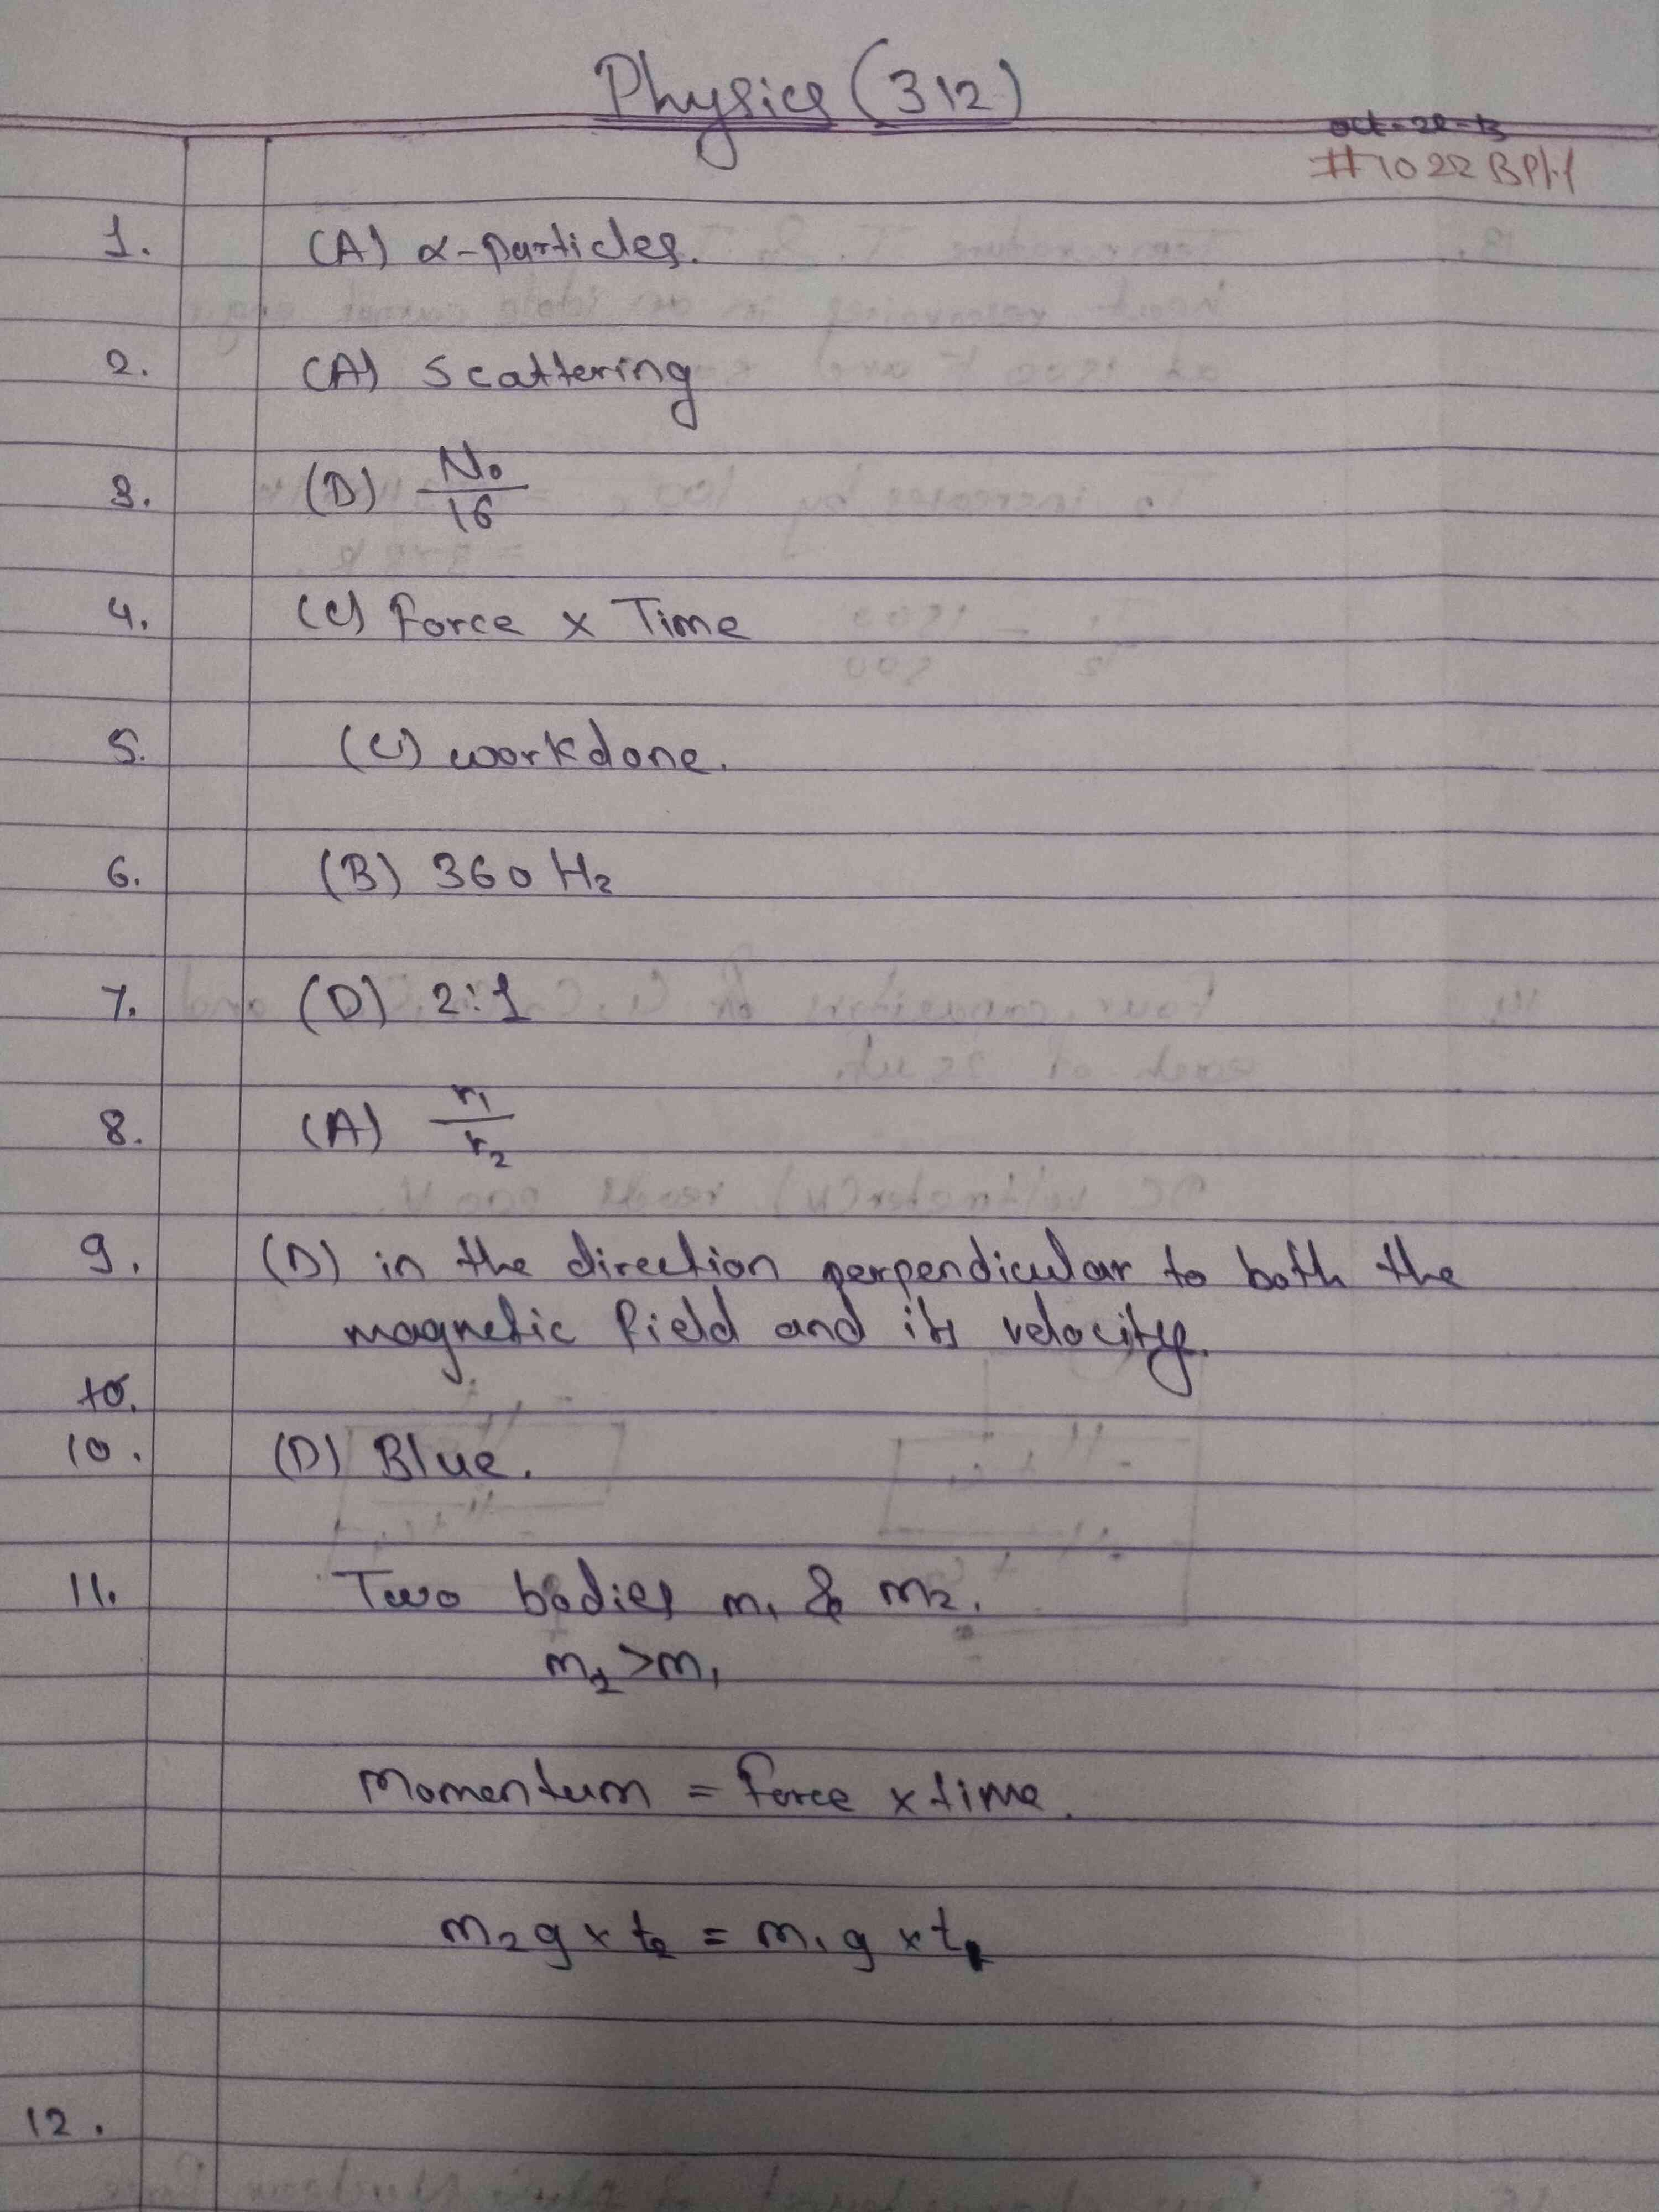 Physics (312)
#1022BPH
1. (A) α-particles.
2. (A) Scattering
3. (D) N₀/16
4. (C) Force x Time
5. (C) workdone.
6. (B) 360 Hz
7. (D) 2:1
8. (A) r₁/r₂
9. (D) in the direction perpendicular to both the
magnetic field and its velocity.
10.
10. (D) Blue.
11. Two bodies m₁ & m₂.
m₂ > m₁
Momentum = force x time.
m₂g x t₂ = m₁g x t₁
12.